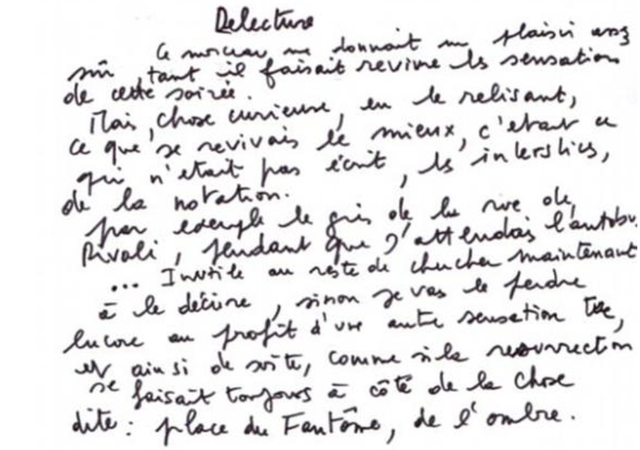 Relecture
Ce morceau me donnait un plaisir assez
sûr, tant il faisait revivre les sensations
de cette soirée.
Mais, chose curieuse, en le relisant,
ce que je revivais le mieux, c'était ce
qui n'était pas écrit, les interstices,
de la notation.
par exemple le gris de la rue de
Rivoli, pendant que j'attendais l'autobus
... Inutile au reste de chercher maintenant
à le décrire, sinon je vas le perdre
encore au profit d'une autre sensation tue,
et ainsi de suite, comme si la resurrection
se faisait toujours à côté de la chose
dite : place du Fantôme, de l'ombre.